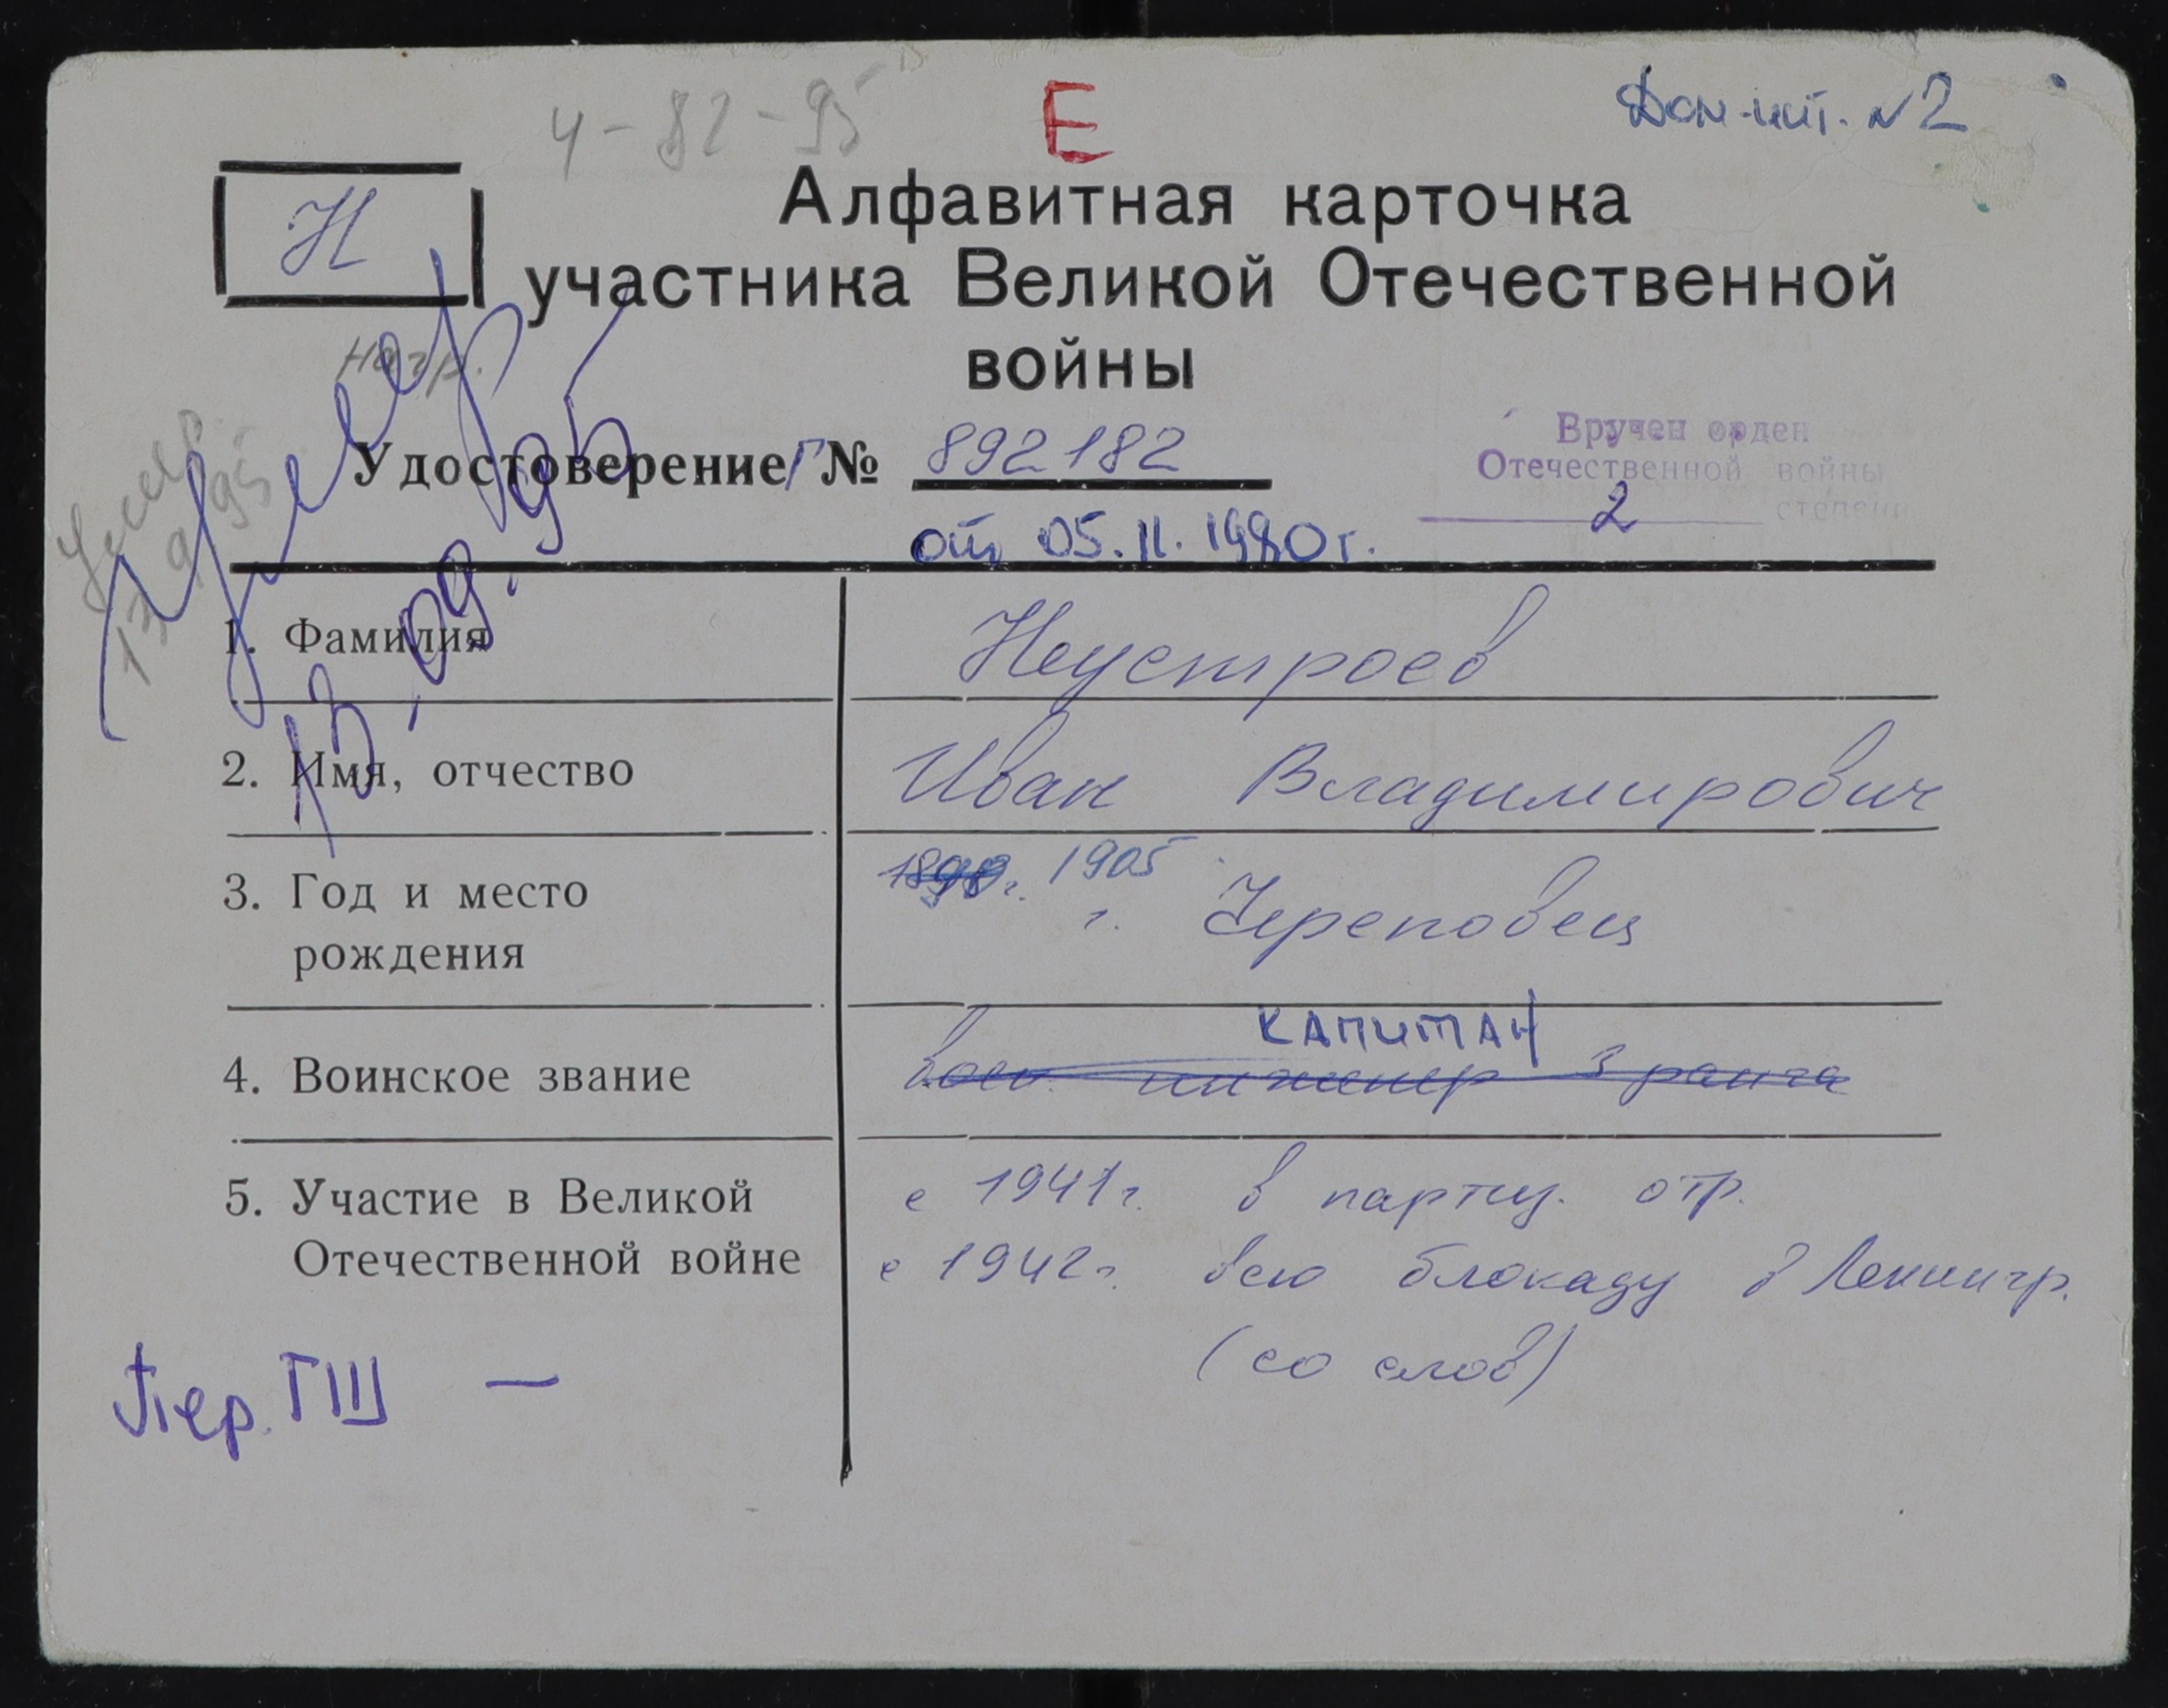 4-82-95
Е
Дом-инт. №2
Н
Алфавитная карточка
участника Великой Отечественной
войны
нагр.
Удостоверение Г №
892182
от 05.11.1980 г.
Вручен орден
Отечественной войны
2 степени
Умер
13.09.95
Умер
13 9 95
1. Фамилия
Неустроев
2. Имя, отчество
Иван Владимирович
3. Год и место
рождения
г. 1905
г. Череповец
4. Воинское звание
КАПИТАН
воен. инженер 3 ранга
5. Участие в Великой
Отечественной войне
с 1941 г. в партиз. отр.
с 1942 г. всю блокаду в Ленингр.
(со слов)
Пер. ГШ —